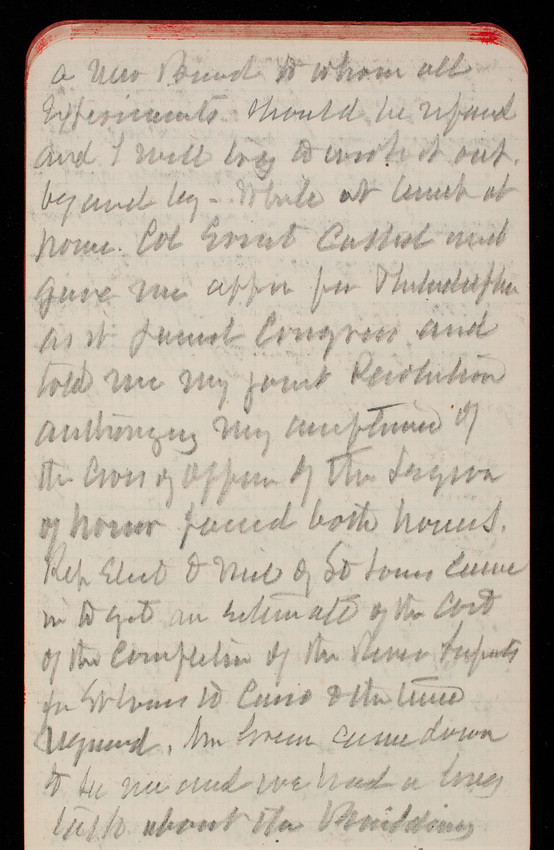 a new Board to whom all
Experiments should be referred
and I will try to work it out.
by and by - While at lunch at
home. Col Ernst called and
gave me appr for Philadelphia
as it passed Congress and
told me my joint Resolution
authorizing my acceptance of
the Cross of Officer of the Legion
of honor passed both houses.
Rep Elect of St Louis came
in to get an estimate of the cost
of the Completion of the River
for St Louis to Cairo & the time
required. Mr Green came down
to see me and we had a long
talk about the Building